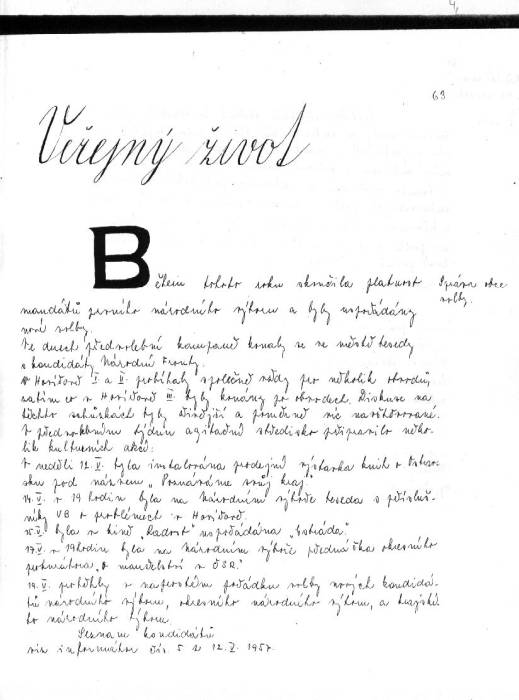 63
Veřejný život
Během tohoto roku skončila platnost
Správa obce
volby.
mandátů prvního národního výboru a byly uspořádány
nové volby.
Ve dnech předvolební kampaně konaly se ve městě besedy
s kandidáty Národní Fronty.
V Havířově I a II probíhaly společné pro několik obvodů,
zatím co v Havířově III. byly konány po obvodech. Diskuse na
těchto schůzkách byly a poměrně
V předvolebním týdnu agitační středisko připravilo něko-
lik kulturních akcí:
V neděli 12.V. byla instalována prodejní výstavka knih v
pod názvem „Poznáváme svůj kraj".
14.V. v 19 hodin byla na Národním výboře beseda s přísluš-
níky VB o problémech v Havířově.
15.V. byla v kině „Radost" uspořádána „Estráda".
17.V. v 19 hodin byla na Národním výboře přednáška okresního
prokurátora „O manželství v ČSR."
19.V. proběhly v naprostém pořádku volby nových kandidá-
tů národního výboru, okresního národního výboru, a krajské-
ho národního výboru.
Seznam kandidátů
viz informátor čís. 5 z 12.V. 1957.